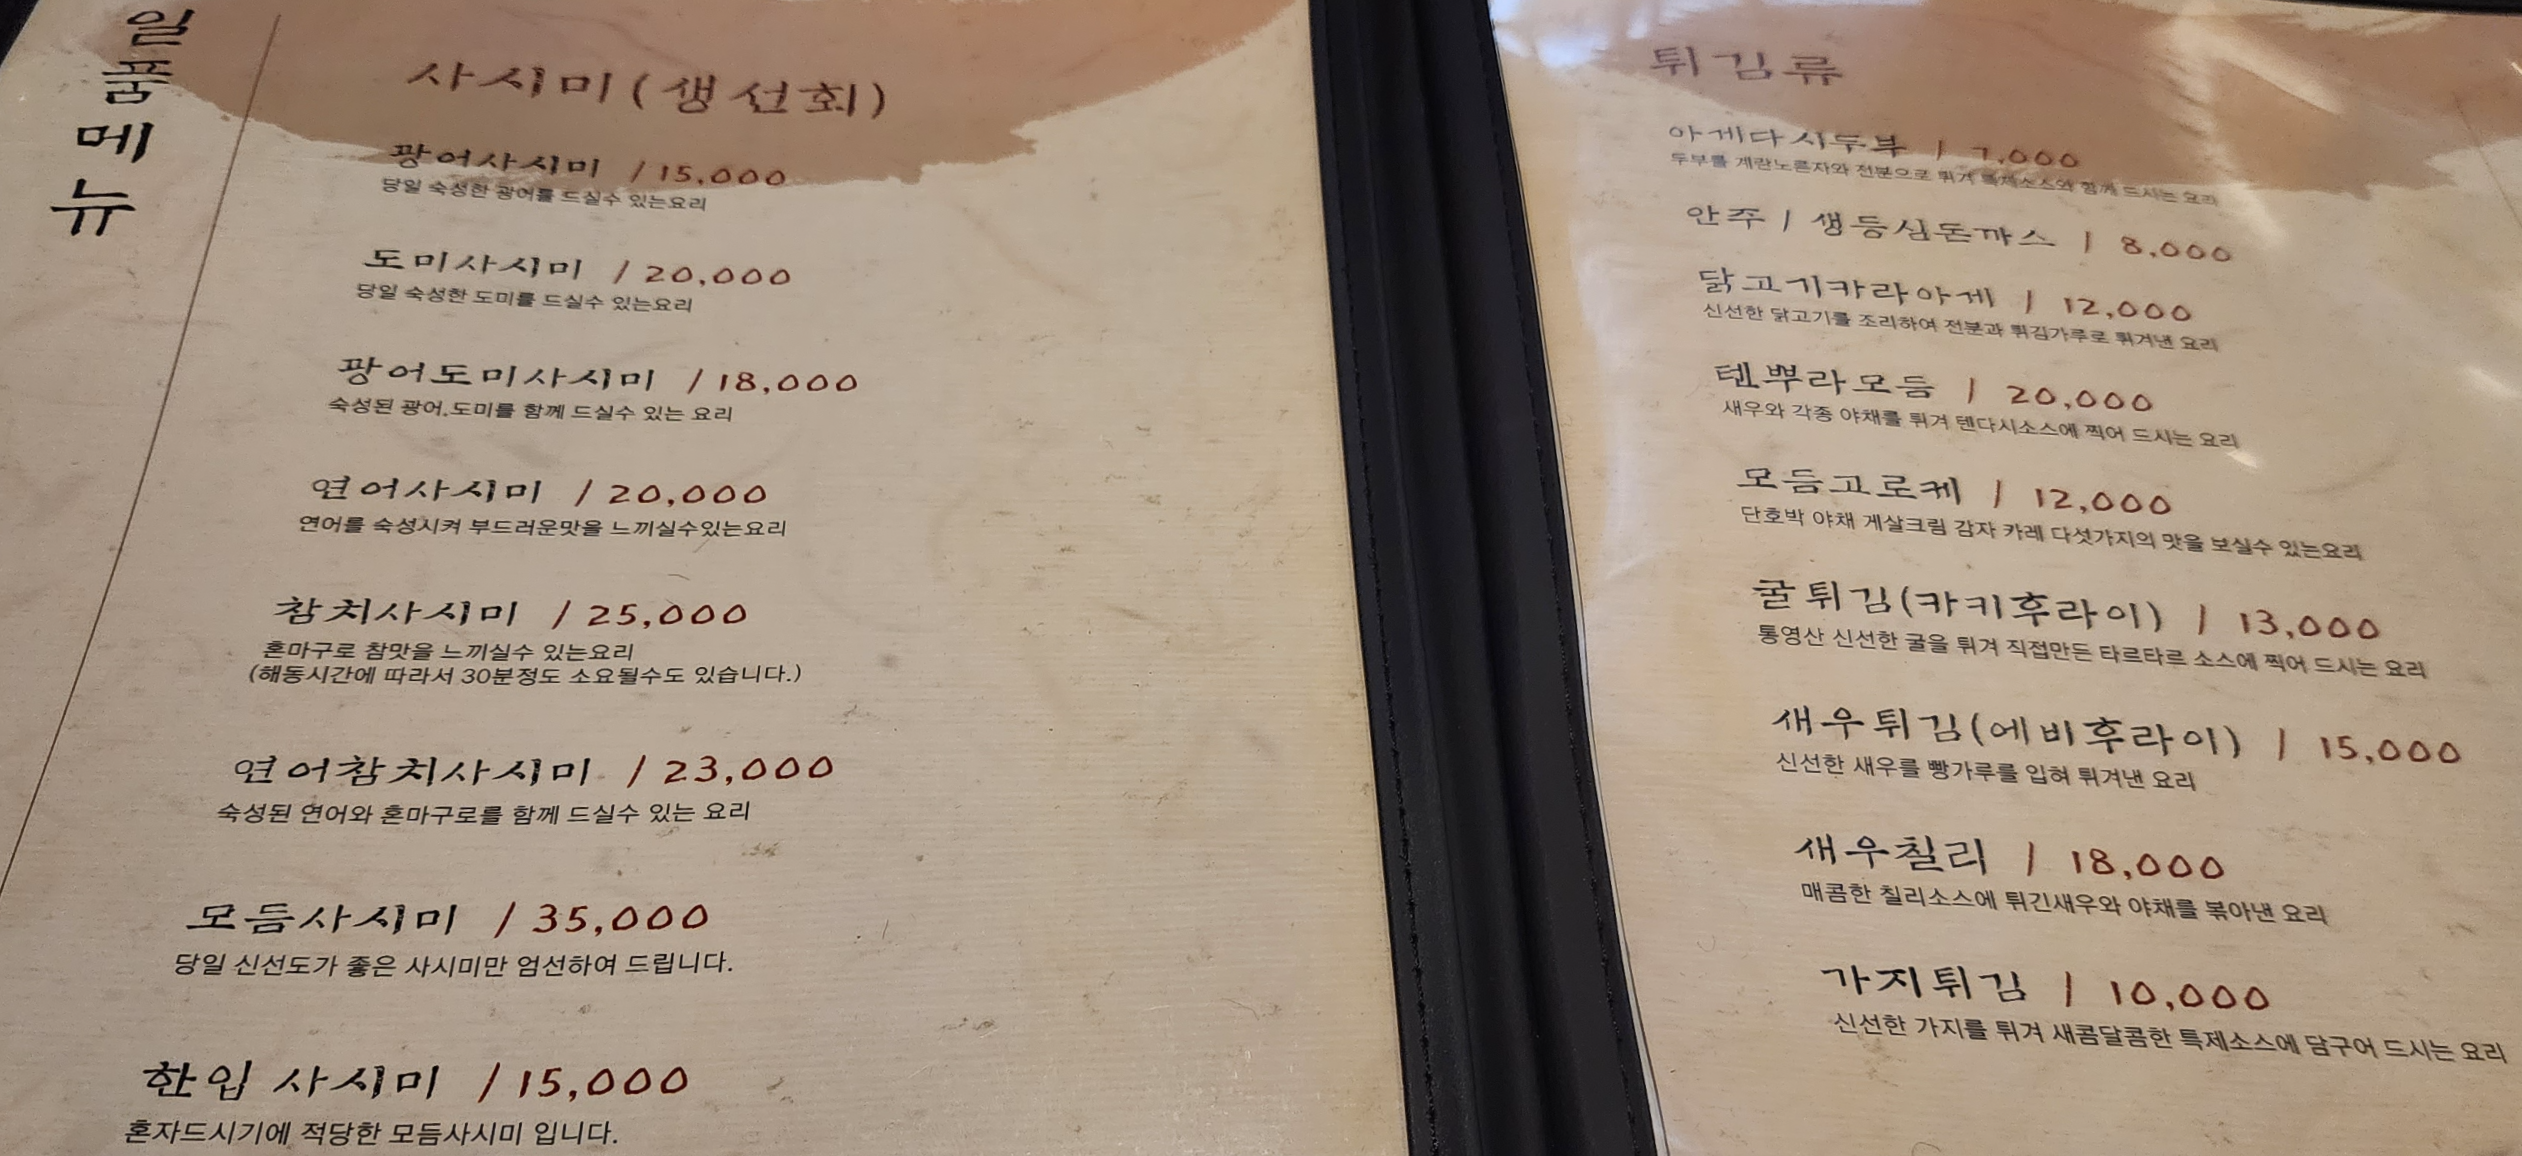 일품메뉴
사시미(생선회)
광어사시미 /15,000
당일 숙성한 광어를 드실수 있는요리
도미사시미 /20,000
당일 숙성한 도미를 드실수 있는요리
광어도미사시미 /18,000
숙성된 광어,도미를 함께 드실수 있는 요리
연어사시미 /20,000
연어를 숙성시켜 부드러운맛을 느끼실수있는요리
참치사시미 /25,000
혼마구로 참맛을 느끼실수 있는요리
(해동시간에 따라서 30분정도 소요될수도 있습니다.)
연어참치사시미 /23,000
숙성된 연어와 혼마구로를 함께 드실수 있는 요리
모듬사시미 /35,000
당일 신선도가 좋은 사시미만 엄선하여 드립니다.
한입 사시미 /15,000
혼자드시기에 적당한 모듬사시미 입니다.
튀김류
아게다시두부 / 7,000
두부를 계란노른자와 전분으로 튀겨 특제소스와 함께 드시는 요리
안주 / 생등심돈까스 / 8,000
닭고기카라아게 / 12,000
신선한 닭고기를 조리하여 전분과 튀김가루로 튀겨낸 요리
텐뿌라모듬 / 20,000
새우와 각종 야채를 튀겨 텐다시소스에 찍어 드시는 요리
모듬고로케 / 12,000
단호박 야채 게살크림 감자 카레 다섯가지의 맛을 보실수 있는요리
굴튀김(카키후라이) / 13,000
통영산 신선한 굴을 튀겨 직접만든 타르타르 소스에 찍어 드시는 요리
새우튀김(에비후라이) / 15,000
신선한 새우를 빵가루를 입혀 튀겨낸 요리
새우칠리 / 18,000
매콤한 칠리소스에 튀긴새우와 야채를 볶아낸 요리
가지튀김 / 10,000
신선한 가지를 튀겨 새콤달콤한 특제소스에 담구어 드시는 요리